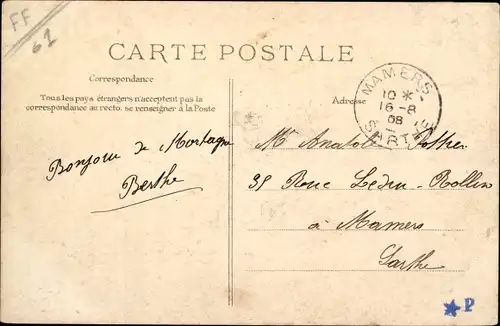 FF
61
CARTE POSTALE
Correspondance
Tous les pays étrangers n'acceptent pas la
correspondance au recto. se renseigner à la Poste
Adresse
MAMERS
10 *
16 - 8
08
SARTHE
Bonjour de Mortagne
Berthe
Mr Anatole Pothier
35 Rue Ledru-Rollin
à Mamers
Sarthe
★P